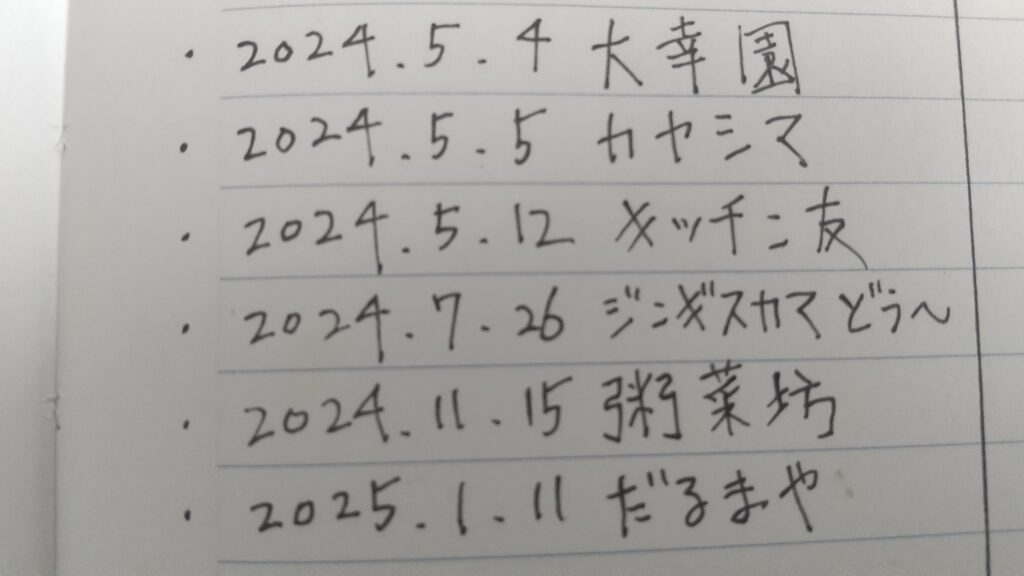 ・2024.5.4 大幸園
・2024.5.5 カヤシマ
・2024.5.12 キッチン友
・2024.7.26 ジンギスカマどぅ〜
・2024.11.15 粥菜坊
・2025.1.11 だるまや